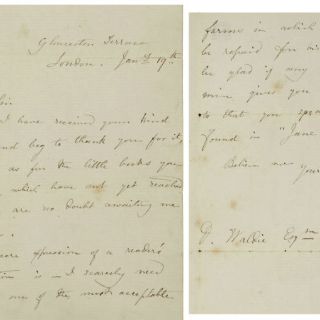 Gloucester Terrace
London. Jany 19th
Sir
I have received your kind
and beg to thank you for it,
as for the little books you
which have not yet reached
are no doubt awaiting me
more expression of a reader's
is - I scarcely need
one of the most acceptable
farms in which
be repaid for his
be glad if any
mine gives you
to that you
found in "Jane
Believe me
your
D. Waldie Esqre